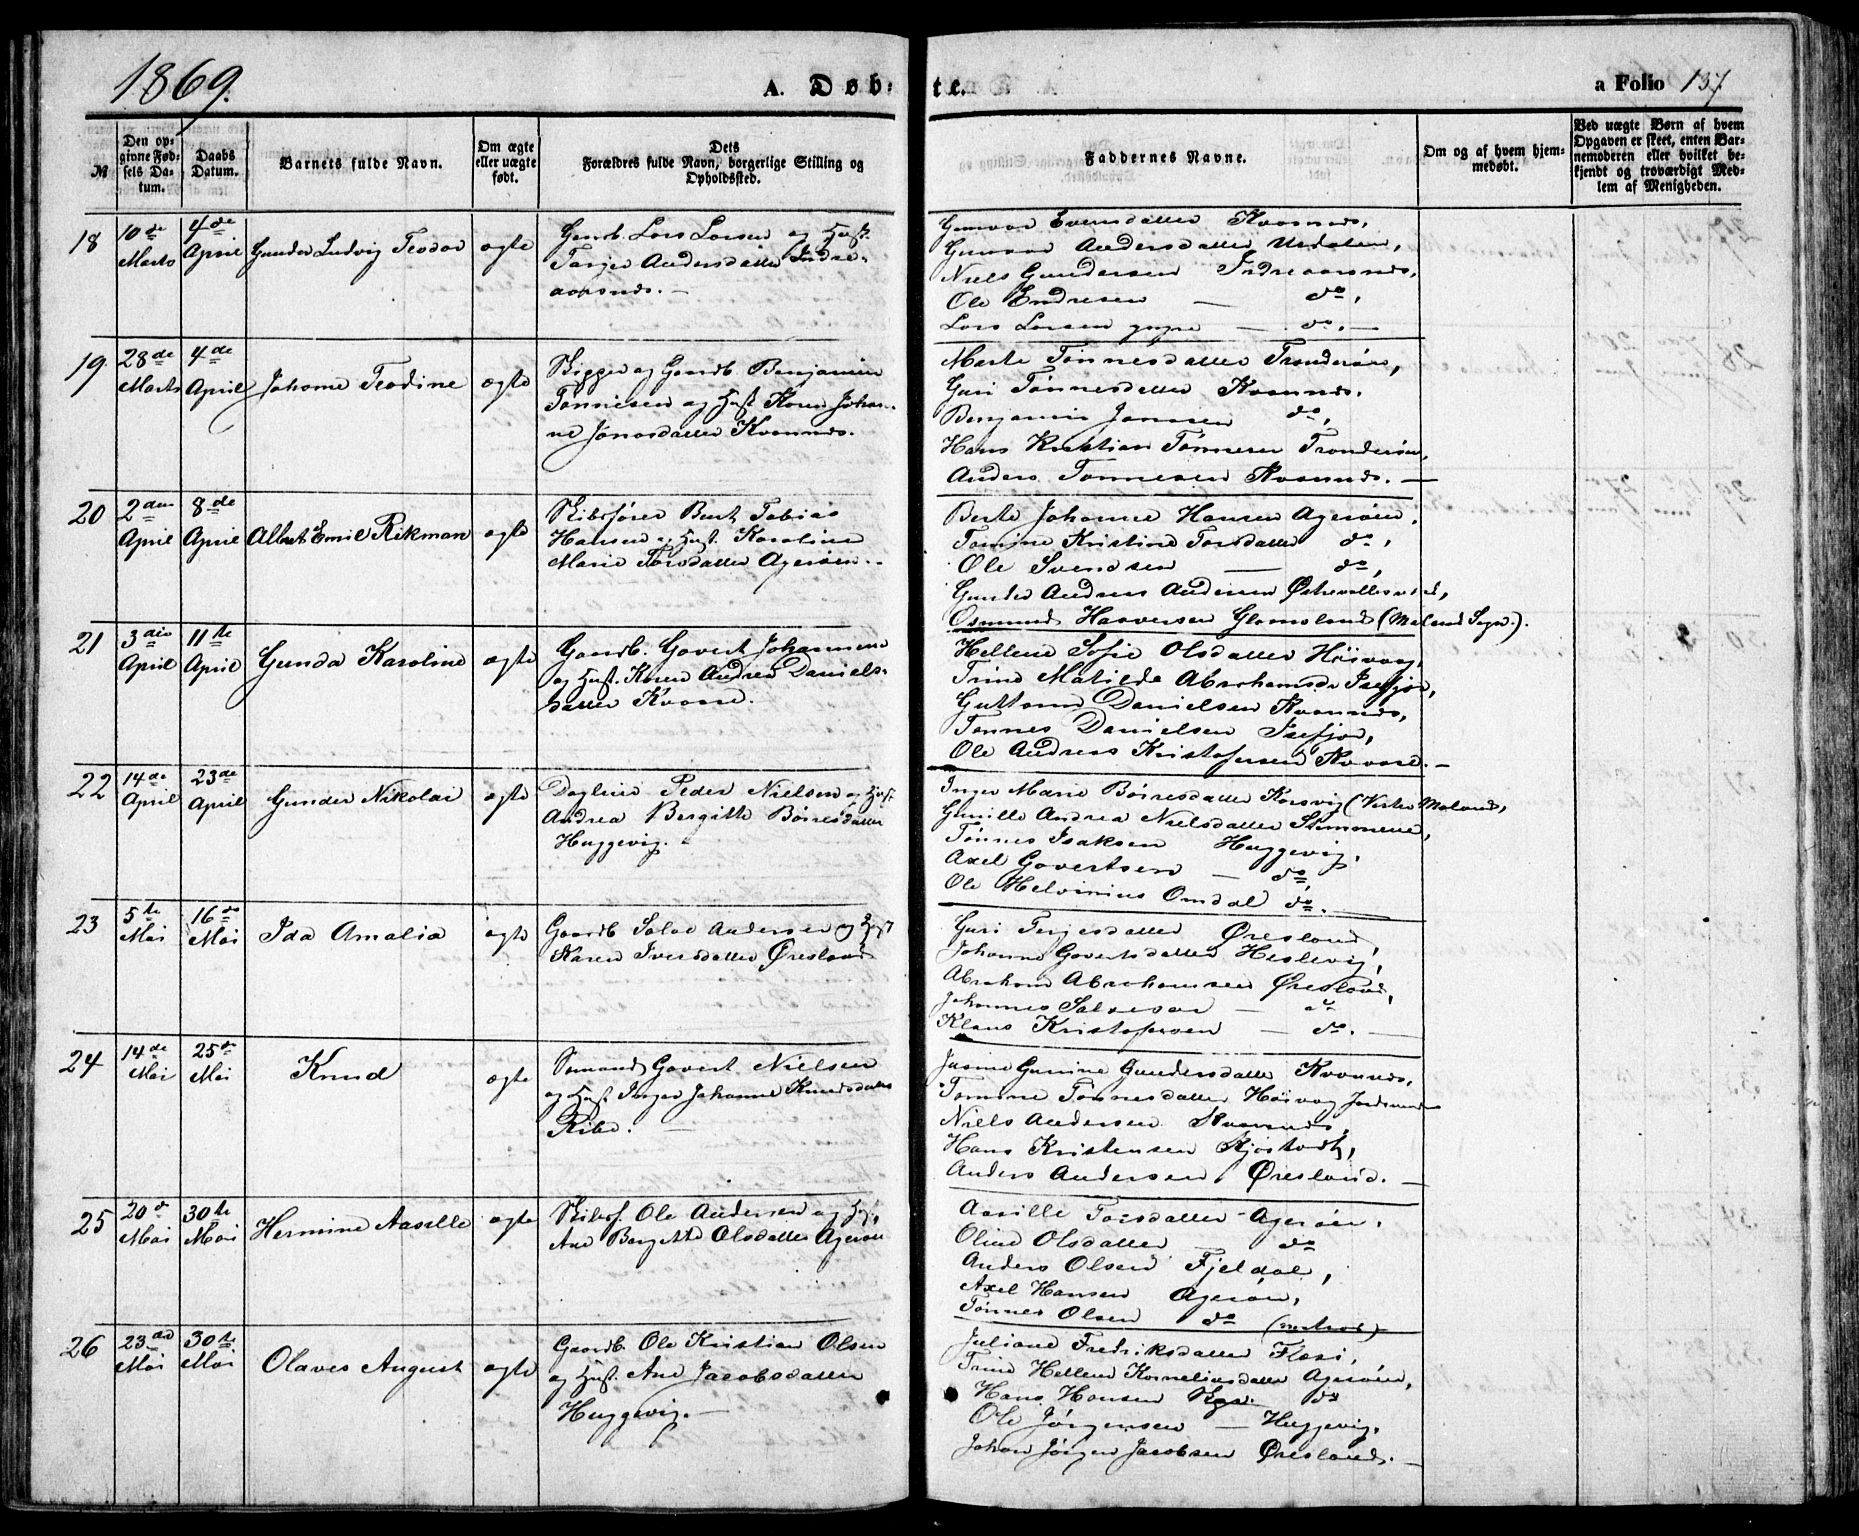 1869.
A. Døb-
te.
a Folio 137
№
Den op-
givne Fød-
sels Da-
tum.
Daabs
Datum.
Barnets fulde Navn.
Om ægte
eller uægte
født.
Dets
Forældres fulde Navn, borgerlige Stilling og
Opholdssted.
Faddernes Navne.
Om og af hvem hjem-
medøbt.
Ved uægte Børn af hvem
Opgaven er skeet, enten Bar-
nemoderen eller hvilket be-
kjendt og troværdigt Med-
lem af Menigheden.
18
10de
Marts
4de
April
Gunder Ludvig Teodor
ægte
Gaardb. Lars Larsen og Hust.
Andersdatter Indre-
aarsnes.
Gunvor Evensdatter Kvannes,
Gunvor Andersdatter Urdalen,
Niels Gundersen Indreaarsnes,
Ole Endresen — do,
Lars Larsen yngre — do. —
19.
28de
Marts
4de
April
Johanne Teodine
ægte
Bygger og Gaardb. Benjamin
Tønnesen og Hust. Karen Johan-
ne Jonasdatter Kvannes.
Marte Tønnesdatter Tronderøen,
Guri Tønnesdatter Kvannes.
Benjamin Jansen do,
Hans Kristian Tønnesen Tronderøen,
Anders Tønnesen Kvannes. —
20
2den
April
8de
April
Albert Emil Rikman
ægte
Skibsfører Bent Tobias
Hansen og Hust. Karoline
Marie Torsdatter Agerøen. -
Berte Johanne Hansen Agerøen,
Tomine Kristine Torsdatter do,
Ole Svendsen — do,
Gunder Andreas Andersen
Osmund Haaversen Glamsland (Moland Sogn).
21
3die
April
11te
April
Gunda Karoline
ægte
Gaardb. Govert Johannesen
og Hust. Karen Andrea Daniels-
datter Kvaase.
Hellene Sofie Olsdatter Høivaag,
Trine Matilde Abrahamsdr Isefjær,
Guttorm Danielsen Kvannes,
Tønnes Danielsen Isefjær,
Ole Andreas Kristofersen Kvaase. —
22
14de
April
23de
April
Gunder Nikolai
ægte
Dagleier Peder Nielsen og Hust.
Andrea Bergitte Børresdatter
Huggevig.
Inger Marie Børresdatter Korsvig (Vestre Moland),
Gunille Andrea Nielsdatter
Tønnes Isaksen Huggevig,
Axel Govertsen — do,
Ole Helvinius Omdal do. —
23
5te
Mai
16de
Mai
Ida Amalia
ægte
Gaardb. Salve Andersen og Hust
Karen Iversdatter Øresland
Guri Terjesdatter Øresland,
Johanne Govertsdatter Heslevig,
Abraham Abrahamsen Øresland,
Johannes Salvesen — do
Klaus Kristofersen — do. —
24
14de
Mai
25de
Mai
Knud
ægte
Sømand Govert Nielsen
og Hust. Inger Johanne Knudsdatter
Ribe. —
Jasine Gurine Gundersdatter Kvannes,
Tomine Tønnesdatter Høivaag
Niels Andersen Kvannes,
Hans Kristensen
Anders Andersen Øresland. —
25
20de
Mai
30te
Mai
Hermine Aasille
ægte
Skibsf. Ole Andersen og Hust.
Ane Bergitte Olsdatter Agerøen
Aasille Torsdatter Agerøen,
Oline Olsdatter — do
Anders Olsen Fjeldal,
Axel Hansen Agerøen,
Tønnes Olsen do (matros)
26
23de
Mai
30te
Mai
Olaves August
ægte
Gaardb. Ole Kristian Olsen
og Hust. Ane Jacobsdatter
Huggevig. —
Juliane Fredriksdatter
Trine Hellene Korneliusdatter Agerøen,
Hans Hansen do
Ole Jørgensen — Huggevig,
Johan Jørgen Jacobsen Øresland. —